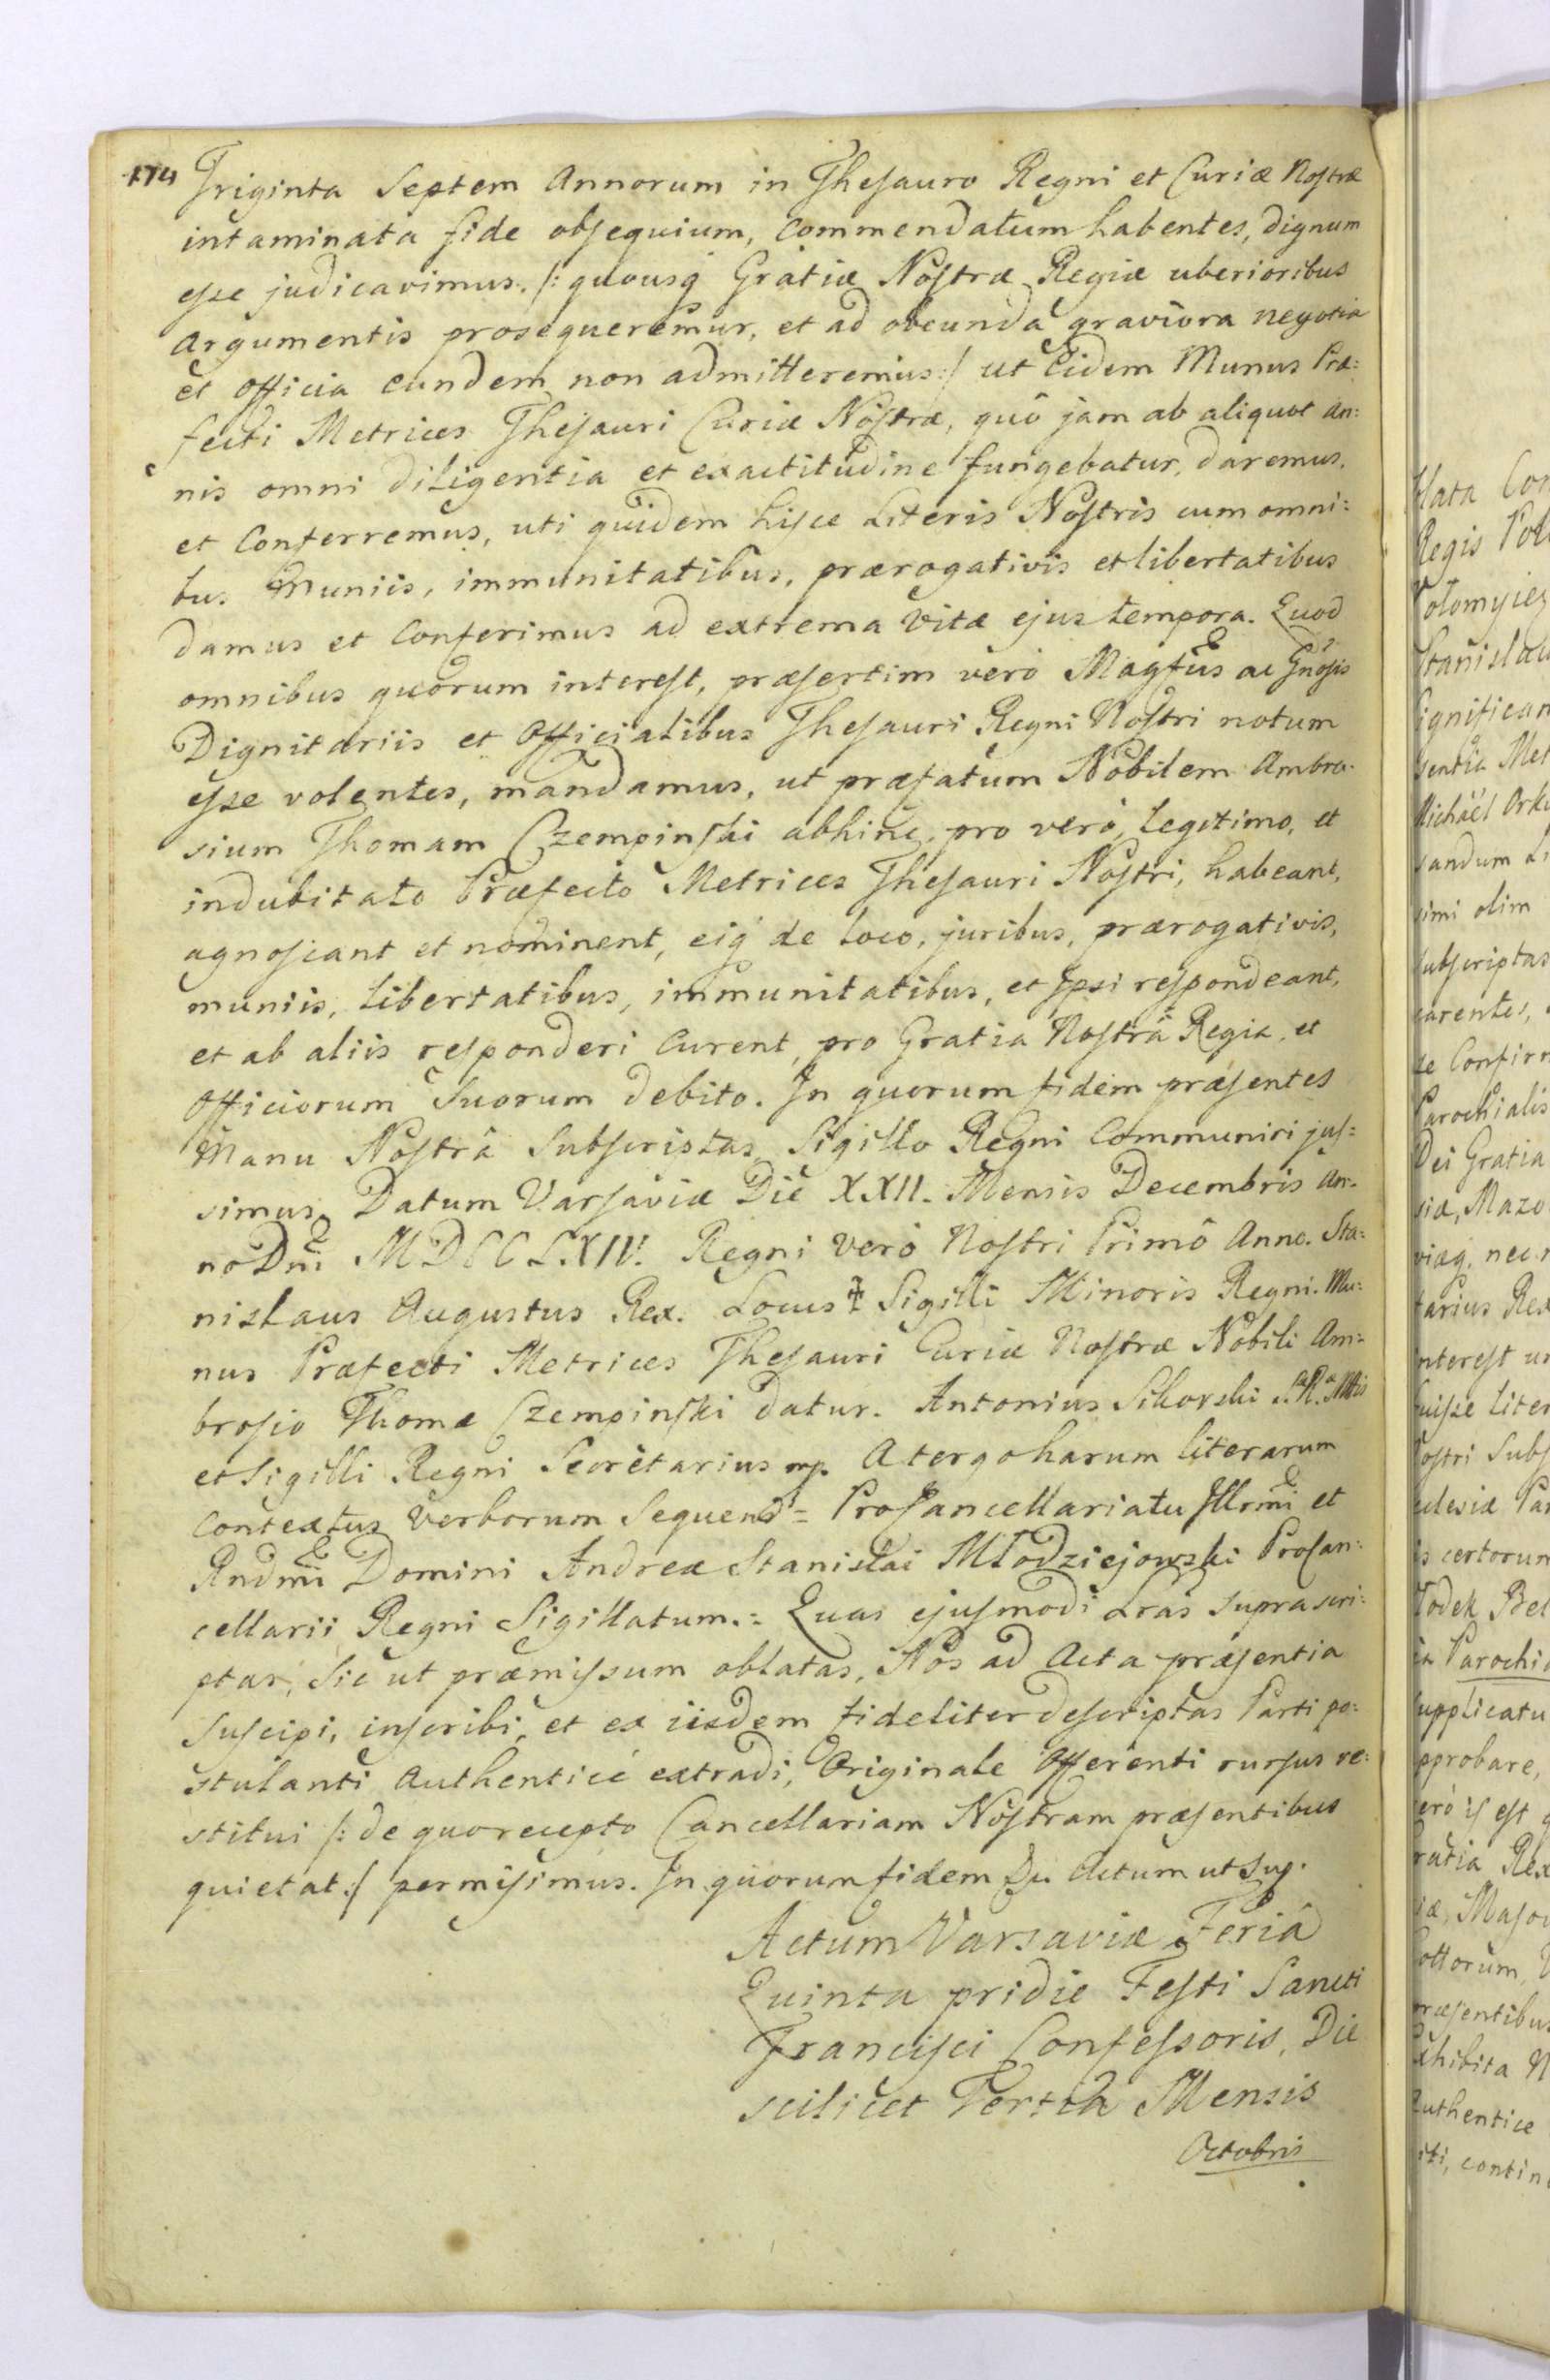 174 Triginta Septem Annorum in Thesauro Regni et Curiæ Nostræ
intaminata fide obsequium, commendatum habentes, dignum
esse judicavimus. /: quousq Gratiæ Nostræ Regiæ uberioribus
argumentis prosequeremur, et ad obeunda graviora negotia
et officia eundem non admitteremus :/ ut Eidem Munus Præ:
fecti Metrices Thesauri Curiæ Nostræ, quô jam ab aliquot an:
nis omni diligentia et exactitudine fungebatur, daremus,
et Conferremus, uti quidem hisce Literis Nostris cum omni:
bus Muniis, immunitatibus, prærogativis et libertatibus
damus et Conferimus ad extrema Vitæ ejus tempora. Quod
omnibus quorum interest, præsertim verò Magfcis ac Gnosis
Dignitariis et Officialibus Thesauri Regni Nostri notum
esse volentes, mandamus, ut præfatum Nobilem Ambro:
sium Thomam Czempinski abhinc, pro verò, legitimo, et
indubitato Præfecto Metrices Thesauri Nostri, habeant,
agnoscant et nominent, eiq de loco, juribus, prærogativis,
muniis, libertatibus, immunitatibus, et Ipsi respondeant,
et ab aliis responderi Curent, pro Gratia Nostrâ Regia, et
Officiorum Suorum debito. In quorum fidem præsentes
Manu Nostrâ Subscriptas, Sigillo Regni Communiri jus:
simus. Datum Varsaviæ Die XXII. Mensis Decembris An:
no Dni MDCCLXIV. Regni verò Nostri Primô Anno. Sta:
nislaus Augustus Rex. Locus ‡ Sigilli Minoris Regni. Mu:
nus Præfecti Metrices Thesauri Curiæ Nostræ Nobili Am:
brosio Thomæ Czempinski datur. Antonius Sikorski S.R.Mttis
et Sigilli Regni Secretarius mp. A tergo harum literarum
contextus verborum Sequens = ProCancellariatu Illrmi et
Rndmi Domini Andreæ Stanislai Młodziejowski ProCan:
cellarii Regni Sigillatum. = Quas ejusmodi Lras suprascri:
ptas, sic ut præmissum oblatas, Nos ad Acta præsentia
suscipi, inscribi, et ex iisdem fideliter descriptas Parti po:
stulanti Authenticè extradi, Originale Offerenti rursus re:
stitui /: de quo recepto Cancellariam Nostram præsentibus
quietat :/ permisimus. In quorum fidem &c Actum ut Sup.
Actum Varsaviæ Feriâ
Quinta pridie Festi Sancti
Francisci Confessoris, Die
scilicet Tertia Mensis
Octobris